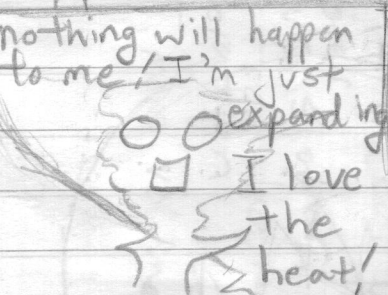 nothing will happen
to me! I'm just
expanding
I love
the
heat!